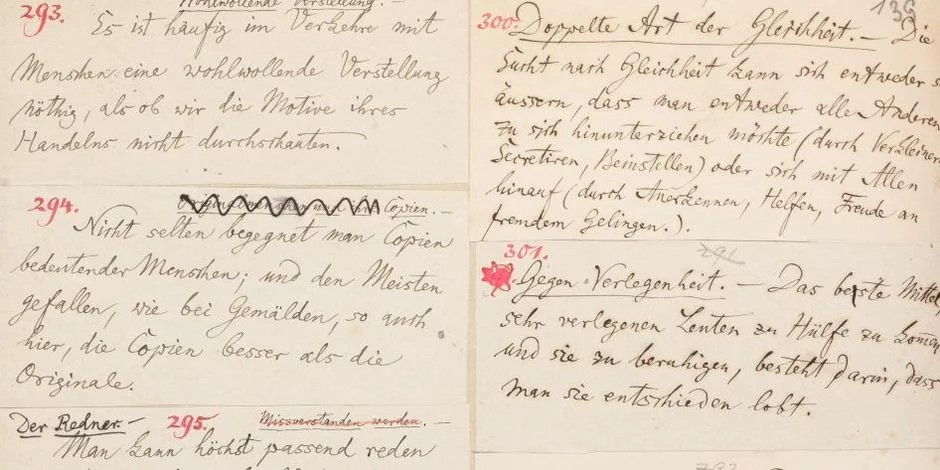 293. Wohlwollende Verstellung. —
Es ist häufig im Verkehre mit
Menschen eine wohlwollende Verstellung
nöthig, als ob wir die Motive ihres
Handelns nicht durchschauten.
294. Copien. —
Nicht selten begegnet man Copien
bedeutender Menschen; und den Meisten
gefallen, wie bei Gemälden, so auch
hier, die Copien besser als die
Originale.
Der Redner. — 295. Missverstanden werden. —
Man kann höchst passend reden
136
300. Doppelte Art der Gleichheit. — Die
Sucht nach Gleichheit kann sich entweder s
äussern, dass man entweder alle Anderen
zu sich hinunterziehen möchte (durch Verkleinern
Secretiren, Beinstellen) oder sich mit Allen
hinauf (durch Anerkennen, Helfen, Freude an
fremdem Gelingen.).
301. 291
Gegen Verlegenheit. — Das beste Mittel,
sehr verlegenen Leuten zu Hülfe zu kommen
und sie zu beruhigen, besteht darin, dass
man sie entschieden lobt.